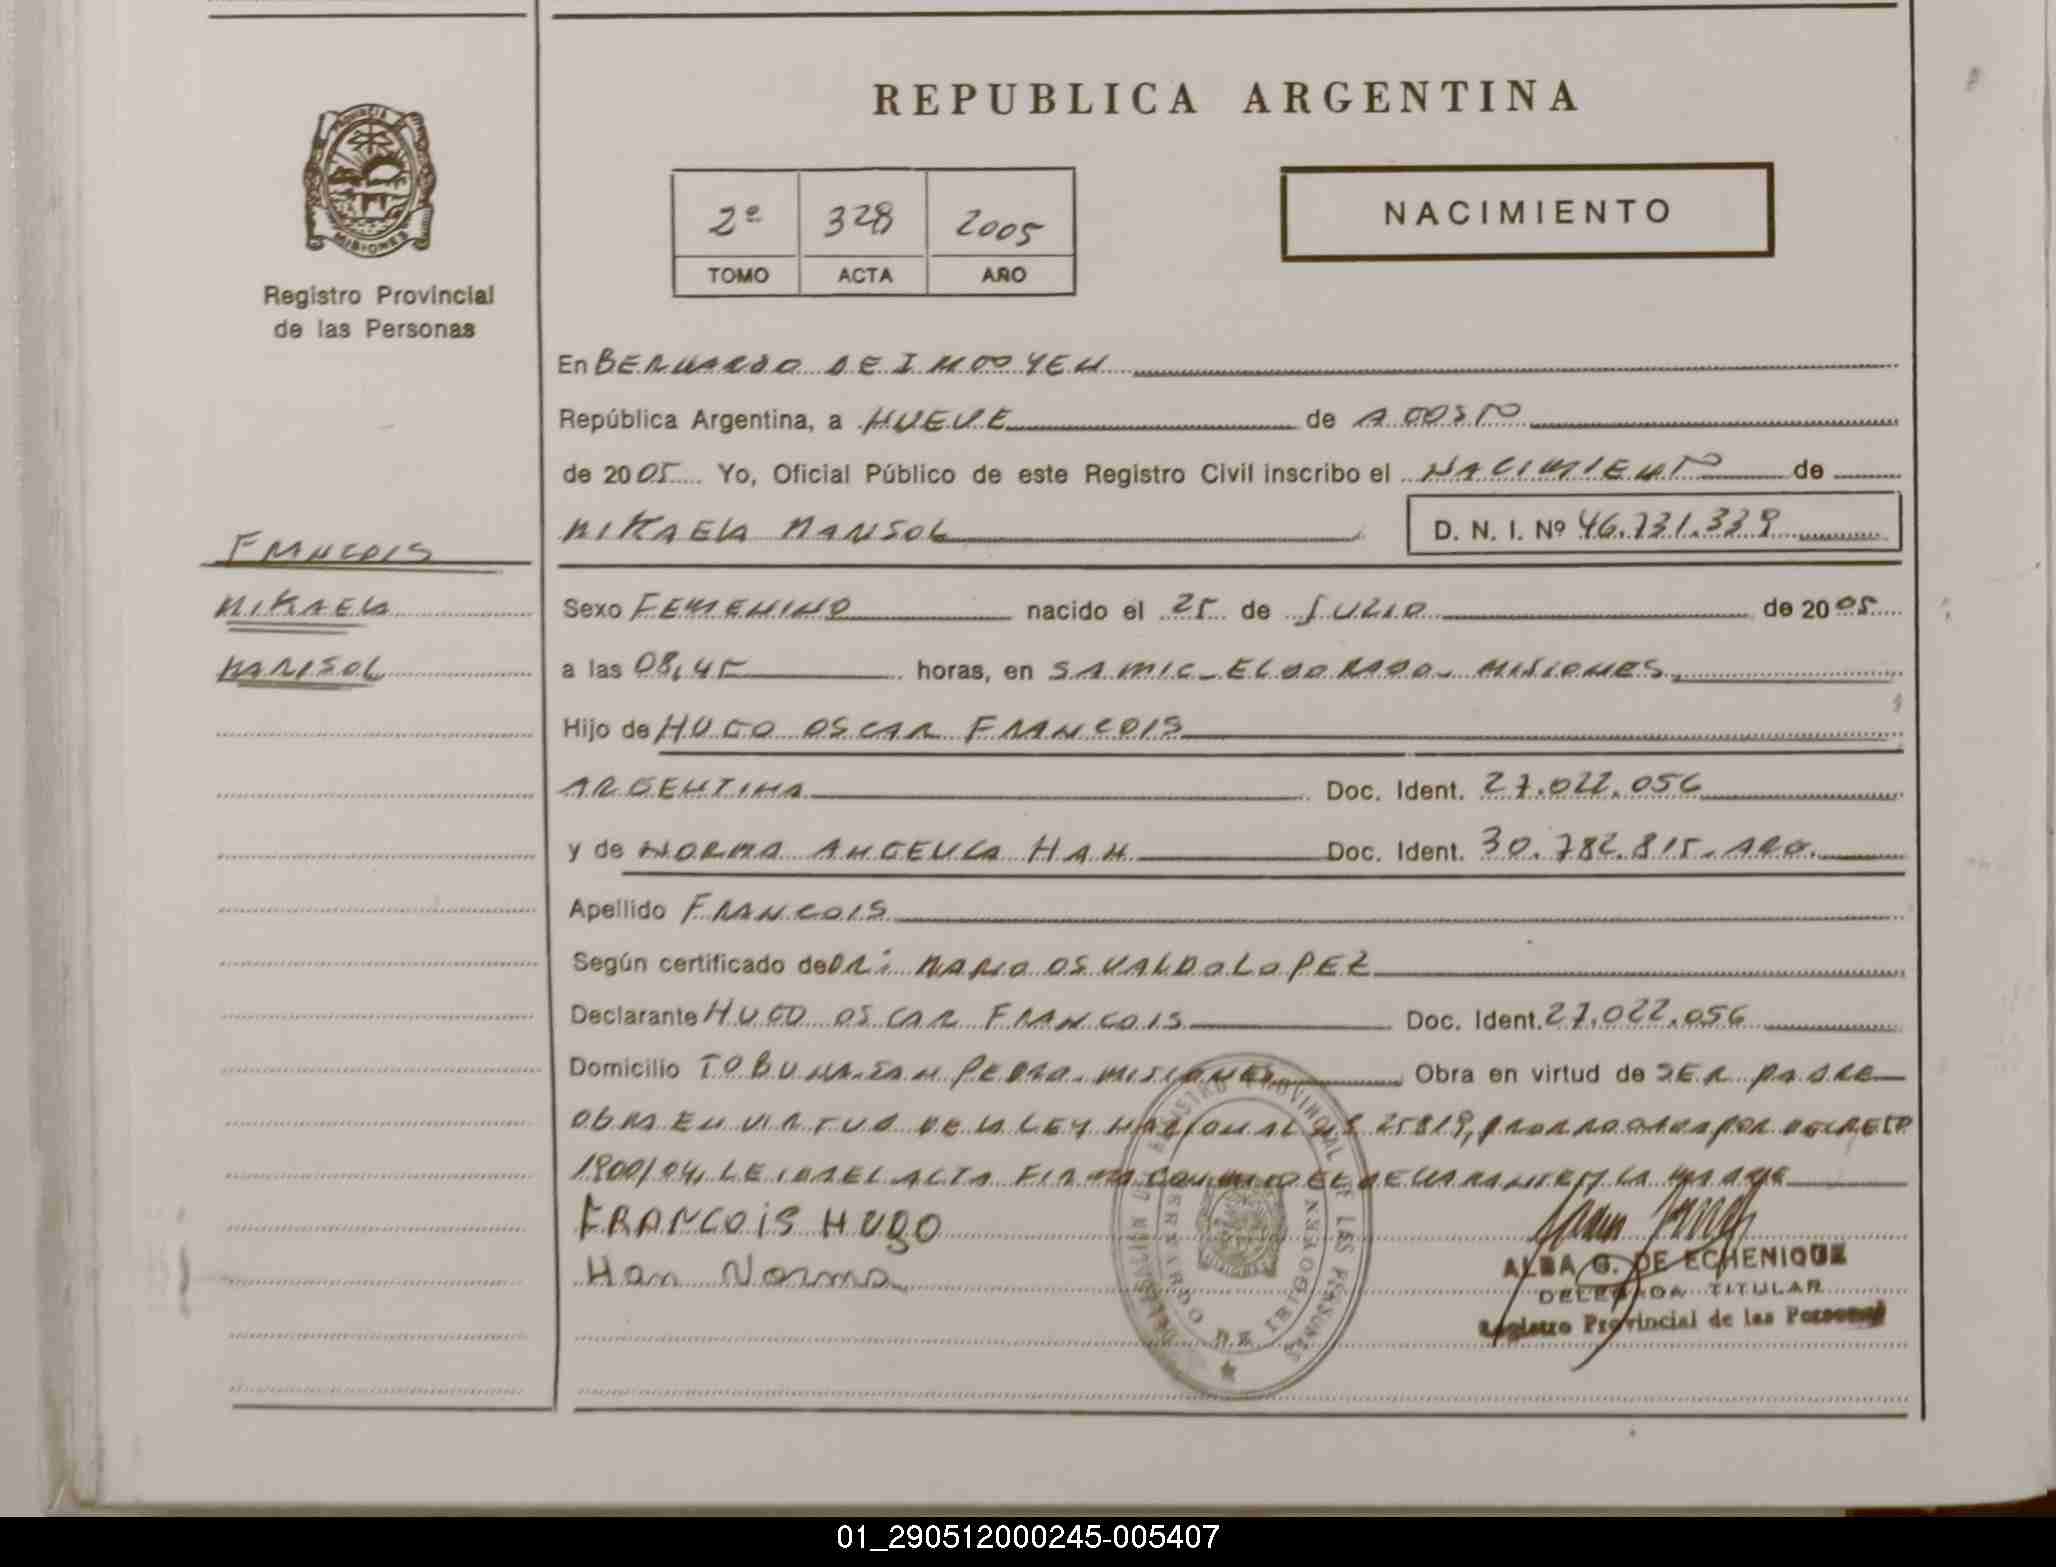 REPUBLICA ARGENTINA
PROVINCIA DE
MISIONES
Registro Provincial
de las Personas
2º 328 2005
TOMO ACTA AÑO
NACIMIENTO
En BERNARDO DE IRIGOYEN
República Argentina, a NUEVE de AGOSTO
de 2005 Yo, Oficial Público de este Registro Civil inscribo el NACIMIENTO de
MIKAELA MARISOL D. N. I. Nº 46.731.339
FRANCOIS
MIKAELA
MARISOL
Sexo FEMENINO nacido el 25 de JULIO de 2005
a las 08,45 horas, en SAMIC - ELDORADO - MISIONES
Hijo de HUGO OSCAR FRANCOIS
ARGENTINA Doc. Ident. 27.022.056
y de NORMA ANGELICA HAN Doc. Ident. 30.782.815. ARG.
Apellido FRANCOIS
Según certificado de DR: MARIO OSVALDO LOPEZ
Declarante HUGO OSCAR FRANCOIS Doc. Ident. 27.022.056
Domicilio TOBUNA. SAN PEDRO. MISIONES Obra en virtud de SER PADRE
OBRA EN VIRTUD DE LA LEY NACIONAL Nº 25819, PRORROGADA POR DECRETO
1900/04. LEIDA EL ACTA FIRMA CONMIGO EL DECLARANTE Y LA MADRE
FRANCOIS HUGO
Han Norma
REGISTRO PROVINCIAL DE LAS PERSONAS
BERNARDO DE IRIGOYEN
ALBA G. DE ECHENIQUE
DELEGADA TITULAR
Registro Provincial de las Personas
01_290512000245-005407